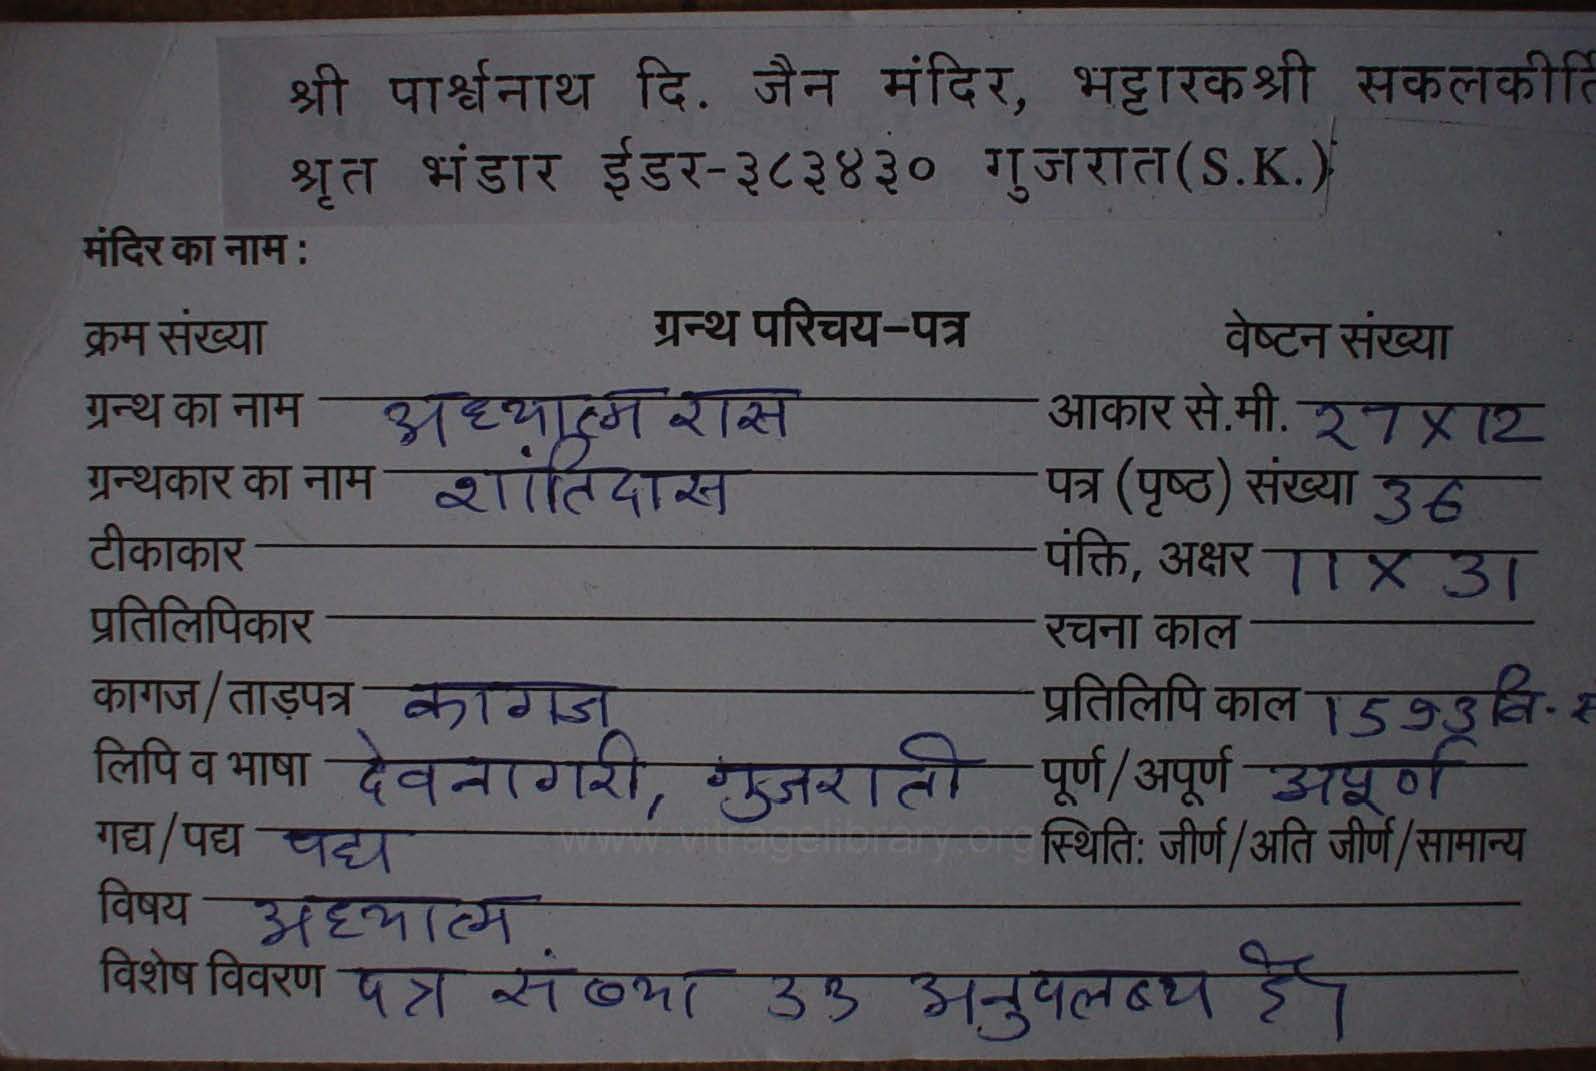 श्री पार्श्वनाथ दि. जैन मंदिर, भट्टारकश्री सकलकीर्ति
श्रृत भंडार ईडर-३८३४३० गुजरात(S.K.)
मंदिर का नाम :
क्रम संख्या ग्रन्थ परिचय-पत्र वेष्टन संख्या
ग्रन्थ का नाम अध्यात्म रास आकार से.मी. 27 X 12
ग्रन्थकार का नाम शांतिदास पत्र (पृष्ठ) संख्या 36
टीकाकार पंक्ति, अक्षर 11 X 31
प्रतिलिपिकार रचना काल
कागज/ताड़पत्र कागज प्रतिलिपि काल वि.
लिपि व भाषा देवनागरी, गुजराती पूर्ण/अपूर्ण अपूर्ण
गद्य/पद्य पद्य www.vitragelibrary.org स्थिति: जीर्ण/अति जीर्ण/सामान्य
विषय अध्यात्म
विशेष विवरण पत्र संख्या 33 अनुपलब्ध है।